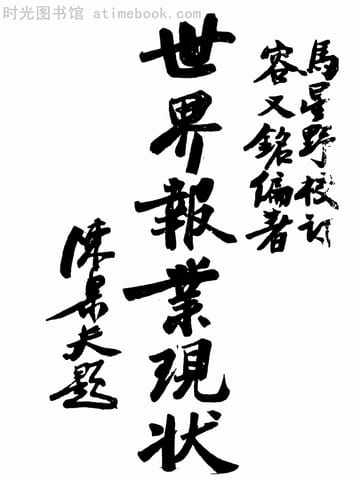 时光图书馆 - atimebook.com
馬星野校訂
容又銘編著
世界報業現狀
陳果夫題